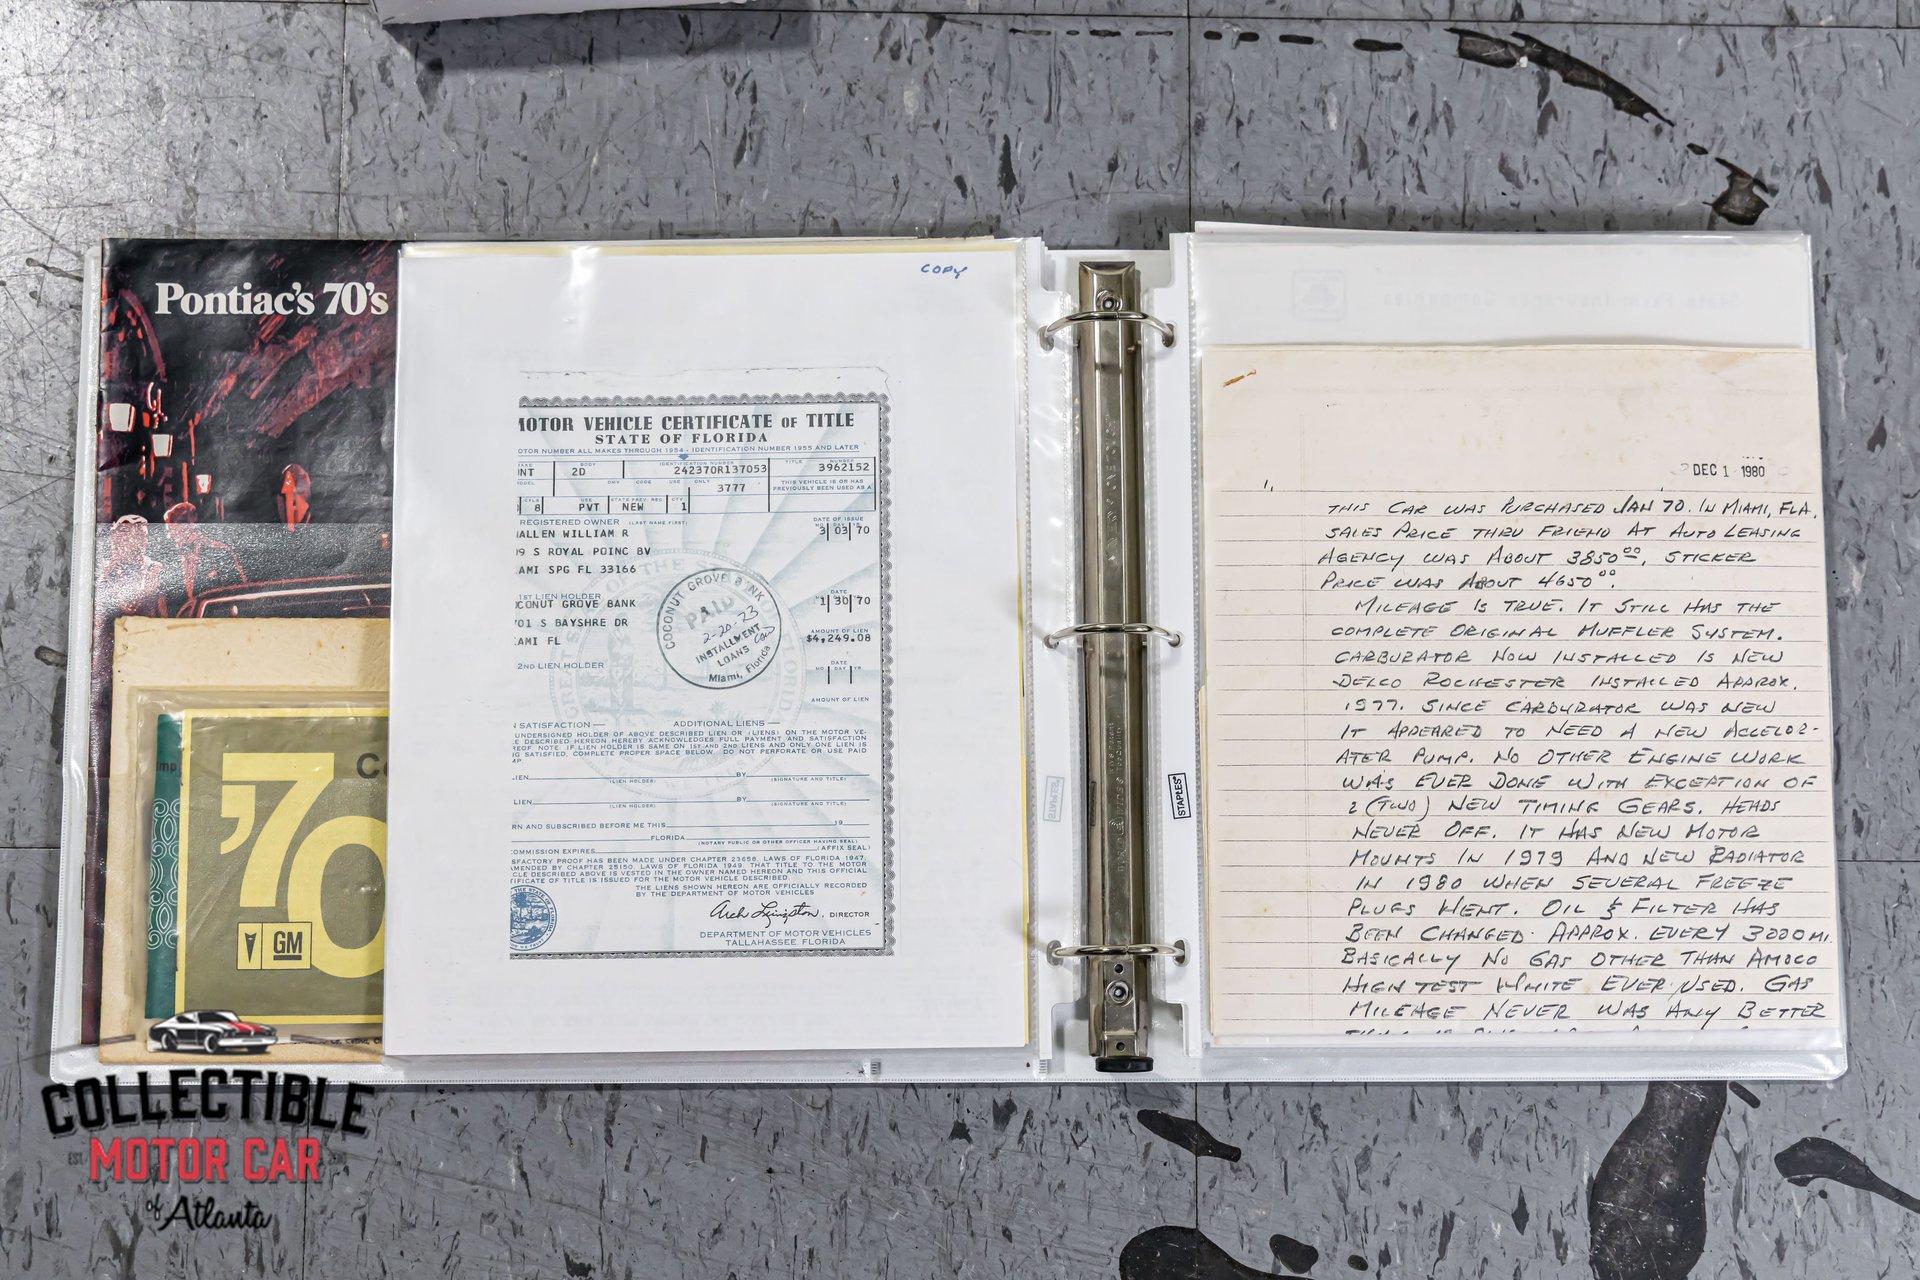 Pontiac's 70's
'70
GM
COPY
MOTOR VEHICLE CERTIFICATE OF TITLE
STATE OF FLORIDA
OTOR NUMBER ALL MAKES THROUGH 1954 - IDENTIFICATION NUMBER 1955 AND LATER
BODY IDENTIFICATION NUMBER TITLE NUMBER
NT 2D 242370R137053 3962152
DMV CODE USE ONLY THIS VEHICLE IS OR HAS
3777 PREVIOUSLY BEEN USED AS A
CYLS USE STATE PREV. REG CTY
8 PVT NEW 1
REGISTERED OWNER (LAST NAME FIRST) DATE OF ISSUE
ALLEN WILLIAM R 3 03 70
9 S ROYAL POINC BV
AMI SPG FL 33166
1ST LIEN HOLDER DATE
CONUT GROVE BANK 1 30 70
01 S BAYSHRE DR AMOUNT OF LIEN
AMI FL $4,249.08
COCONUT GROVE BANK
PAID
2-20-73
INSTALLMENT
LOANS
Miami, Florida
2ND LIEN HOLDER DATE
MO DAY YR
AMOUNT OF LIEN
N SATISFACTION — ADDITIONAL LIENS —
UNDERSIGNED HOLDER OF ABOVE DESCRIBED LIEN OR (LIENS) ON THE MOTOR VE-
E DESCRIBED HEREON HEREBY ACKNOWLEDGES FULL PAYMENT AND SATISFACTION
REOF NOTE IF LIEN HOLDER IS SAME ON 1ST AND 2ND LIENS AND ONLY ONE LIEN IS
G SATISFIED, COMPLETE PROPER SPACE BELOW. DO NOT PERFORATE OR USE PAID
IEN BY
(LIEN HOLDER) (SIGNATURE AND TITLE)
LIEN BY
(LIEN HOLDER) (SIGNATURE AND TITLE)
RN AND SUBSCRIBED BEFORE ME THIS 19
FLORIDA
(NOTARY PUBLIC OR OTHER OFFICER HAVING SEAL)
OMMISSION EXPIRES (AFFIX SEAL)
SFACTORY PROOF HAS BEEN MADE UNDER CHAPTER 23658, LAWS OF FLORIDA 1947,
AMENDED BY CHAPTER 25150, LAWS OF FLORIDA 1949, THAT TITLE TO THE MOTOR
CLE DESCRIBED ABOVE IS VESTED IN THE OWNER NAMED HEREON AND THIS OFFICIAL
TIFICATE OF TITLE IS ISSUED FOR THE MOTOR VEHICLE DESCRIBED
THE LIENS SHOWN HEREON ARE OFFICIALLY RECORDED
BY THE DEPARTMENT OF MOTOR VEHICLES
Arch Livingston, DIRECTOR
DEPARTMENT OF MOTOR VEHICLES
TALLAHASSEE, FLORIDA
STAPLES
DEC 1 1980
1.
THIS CAR WAS PURCHASED JAN 70. IN MIAMI, FLA.
SALES PRICE THRU FRIEND AT AUTO LEASING
AGENCY WAS ABOUT 3850⁰⁰, STICKER
PRICE WAS ABOUT 4650⁰⁰.
MILEAGE IS TRUE. IT STILL HAS THE
COMPLETE ORIGINAL MUFFLER SYSTEM.
CARBURATOR NOW INSTALLED IS NEW
DELCO ROCHESTER INSTALLED APPROX.
1977. SINCE CARBURATOR WAS NEW
IT APPEARED TO NEED A NEW ACCELOR-
ATER PUMP. NO OTHER ENGINE WORK
WAS EVER DONE WITH EXCEPTION OF
2 (TWO) NEW TIMING GEARS. HEADS
NEVER OFF. IT HAS NEW MOTOR
MOUNTS IN 1979 AND NEW RADIATOR
IN 1980 WHEN SEVERAL FREEZE
PLUGS WENT. OIL & FILTER HAS
BEEN CHANGED APPROX. EVERY 3000 MI.
BASICALLY NO GAS OTHER THAN AMOCO
HIGH TEST WHITE EVER USED. GAS
MILEAGE NEVER WAS ANY BETTER
COLLECTIBLE
EST. MOTOR CAR
of Atlanta